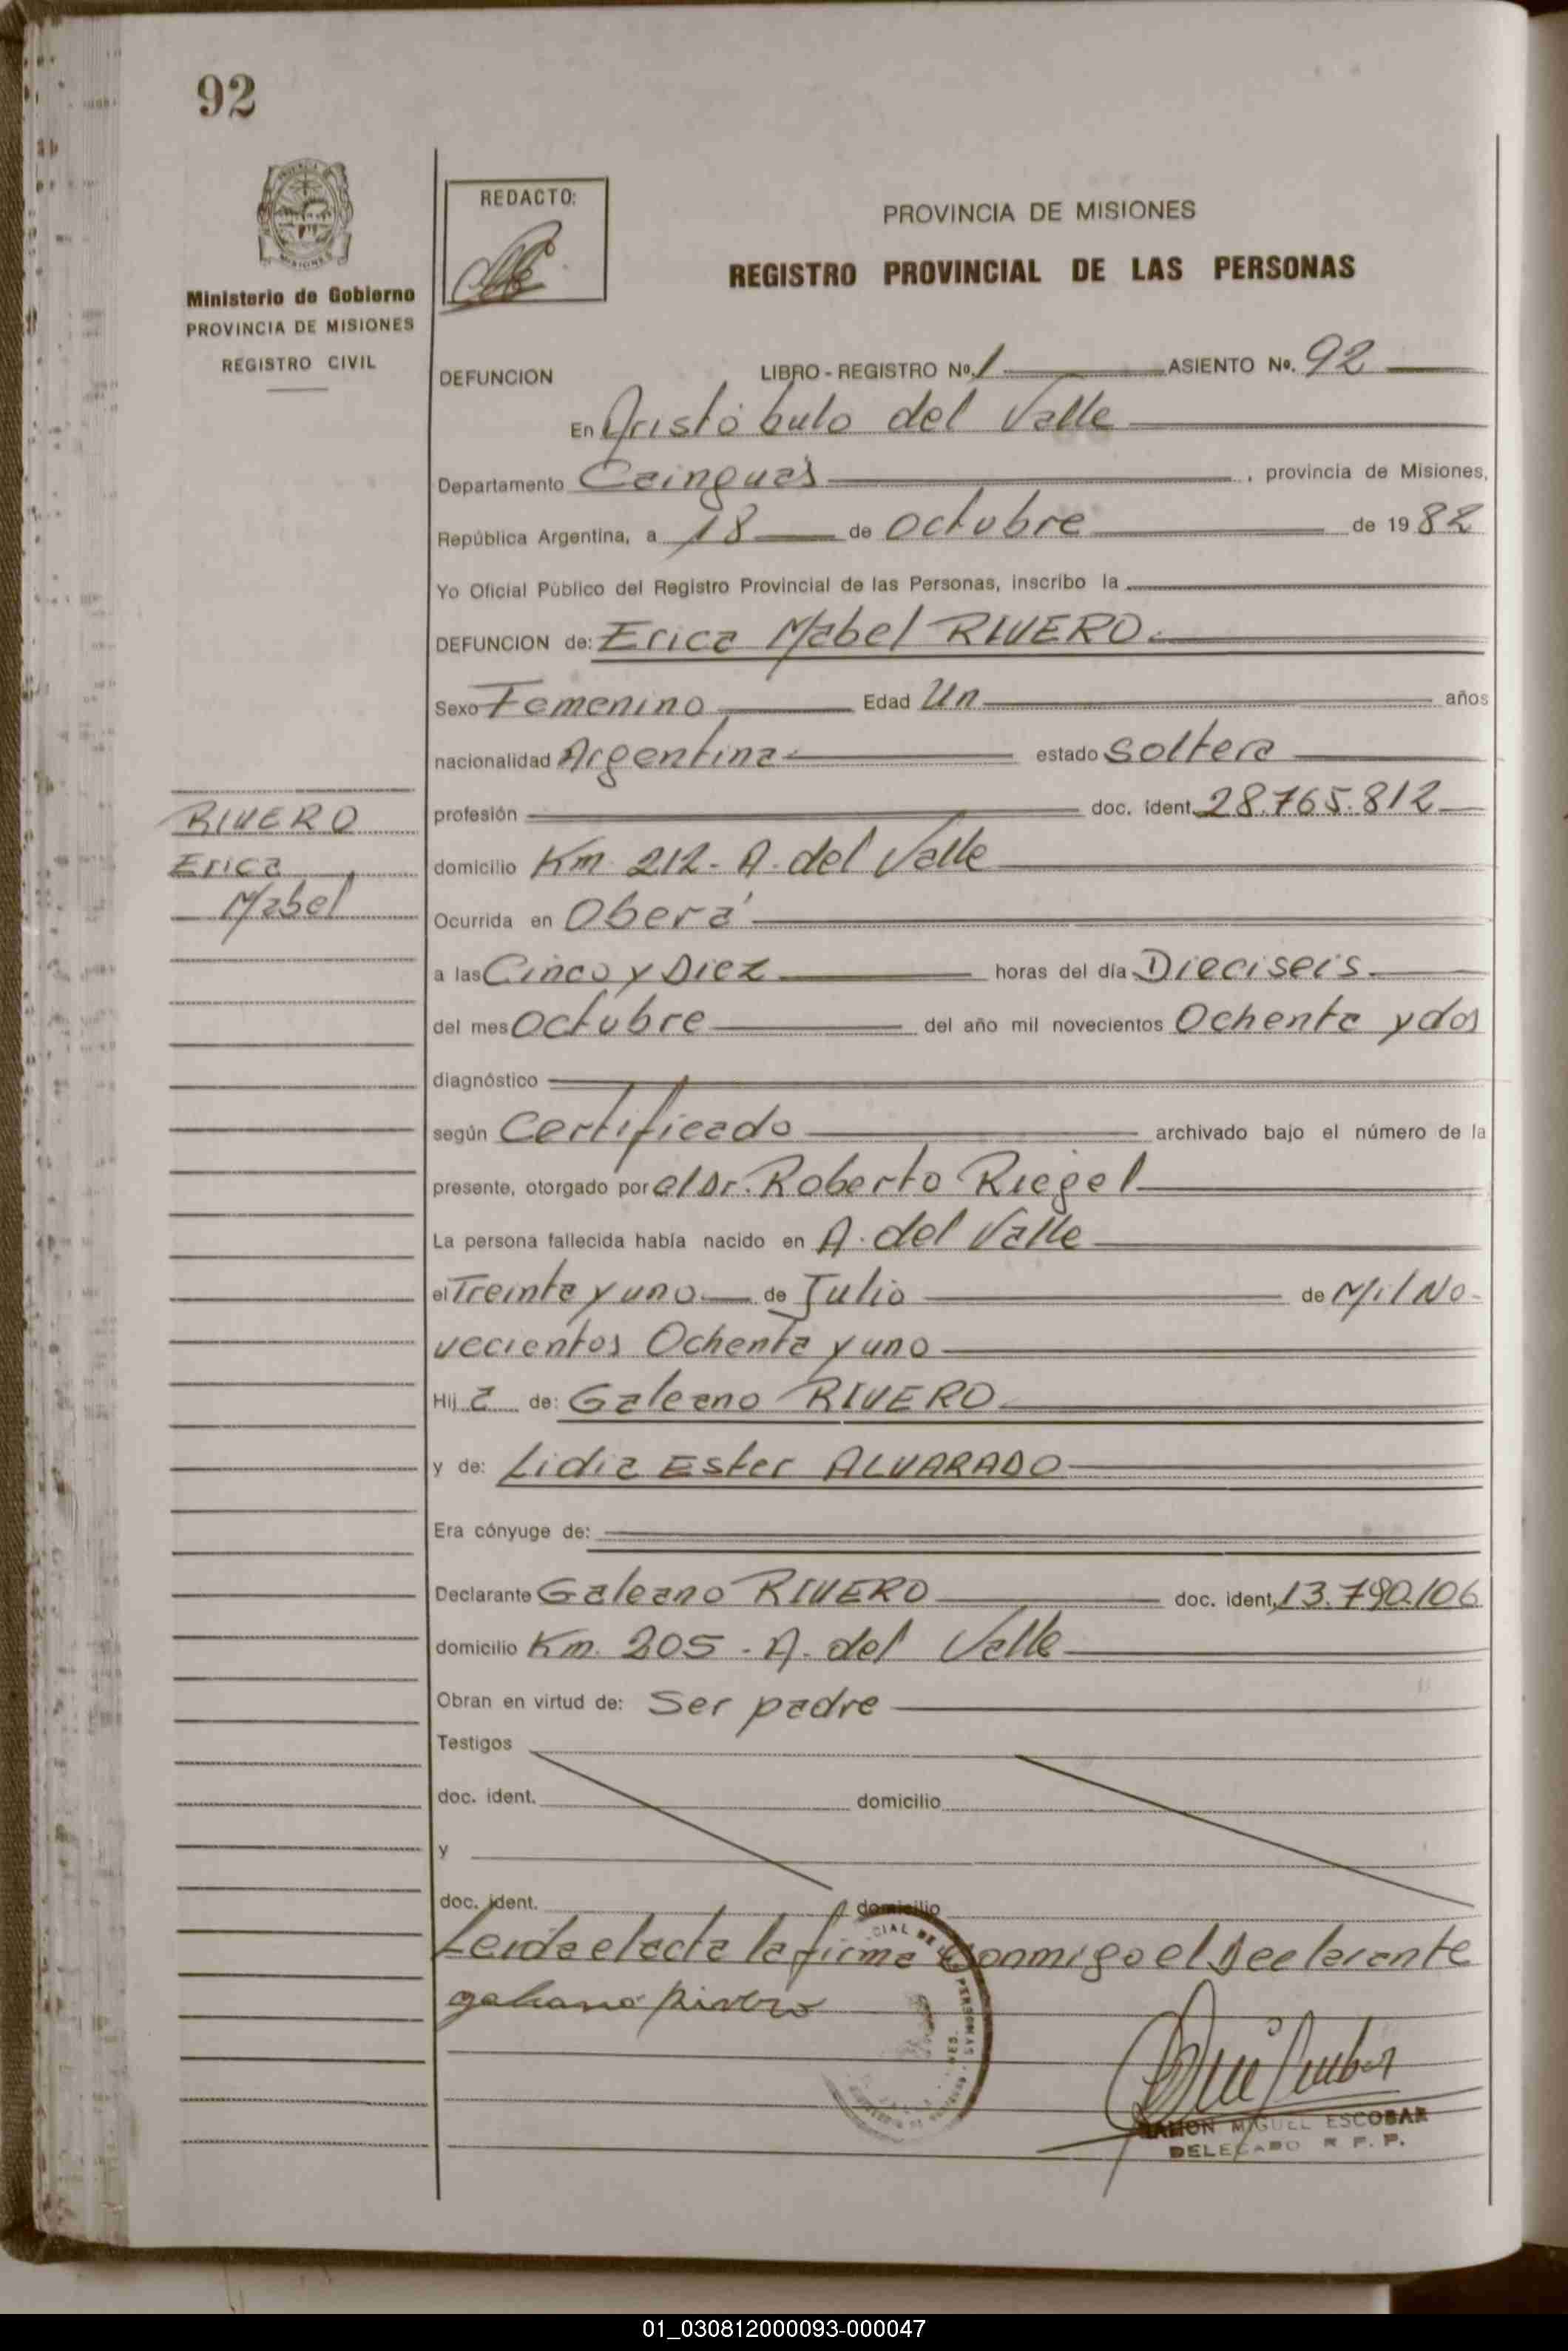 92
REDACTO:
PROVINCIA DE MISIONES
REGISTRO PROVINCIAL DE LAS PERSONAS
Ministerio de Gobierno
PROVINCIA DE MISIONES
REGISTRO CIVIL
DEFUNCION LIBRO - REGISTRO Nº. 1 ASIENTO Nº. 92
En Aristóbulo del Valle
Departamento Cainguás , provincia de Misiones,
República Argentina, a 18 de octubre de 19 82
Yo Oficial Público del Registro Provincial de las Personas, inscribo la
DEFUNCION de: Erica Mabel RIVERO.
Sexo Femenino Edad Un años
nacionalidad Argentina estado soltera
profesión doc. ident. 28.765.812
RIVERO
Erica
Mabel
domicilio Km 212 - A. del Valle
Ocurrida en Oberá
a las Cinco y Diez horas del día Dieciseis
del mes octubre del año mil novecientos Ochenta y dos
diagnóstico
según Certificado archivado bajo el número de la
presente, otorgado por el Dr. Roberto Riegel
La persona fallecida había nacido en A. del Valle
el Treinta y uno de Julio de Mil No-
vecientos Ochenta y uno
Hij a de: Galeano RIVERO
y de: Lidia Ester ALVARADO
Era cónyuge de:
Declarante Galeano RIVERO doc. ident. 13.790.106
domicilio Km. 205 - A. del Valle
Obran en virtud de: Ser padre
Testigos
doc. ident. domicilio
y
doc. ident. domicilio
Leida el acta la firma conmigo el Declarante
galeano rivero
RAMON MIGUEL ESCOBAR
DELEGADO R. P. P.
01_030812000093-000047